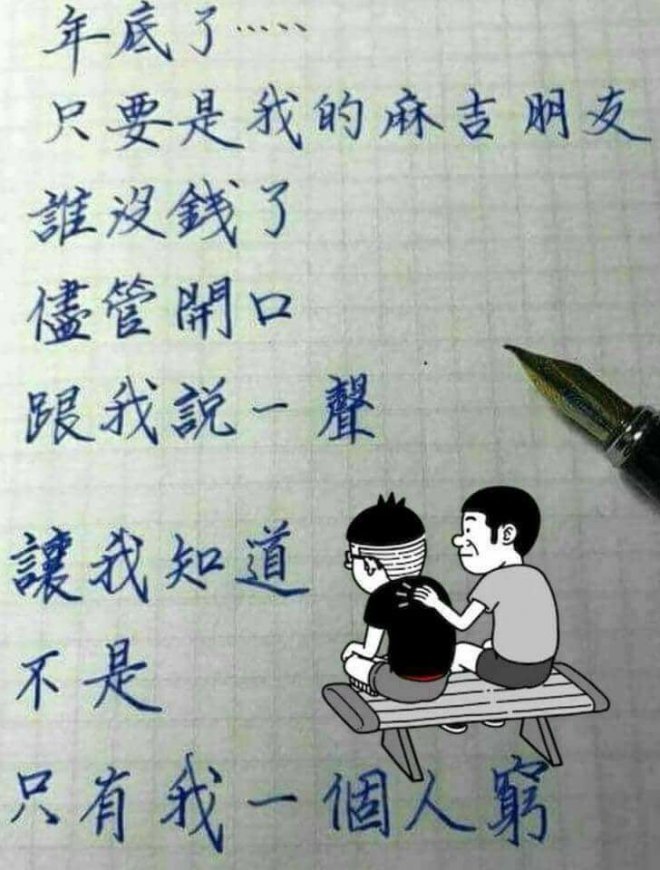 年底了⋯⋯
只要是我的麻吉朋友
誰沒錢了
儘管開口
跟我說一聲
讓我知道
不是
只有我一個人窮